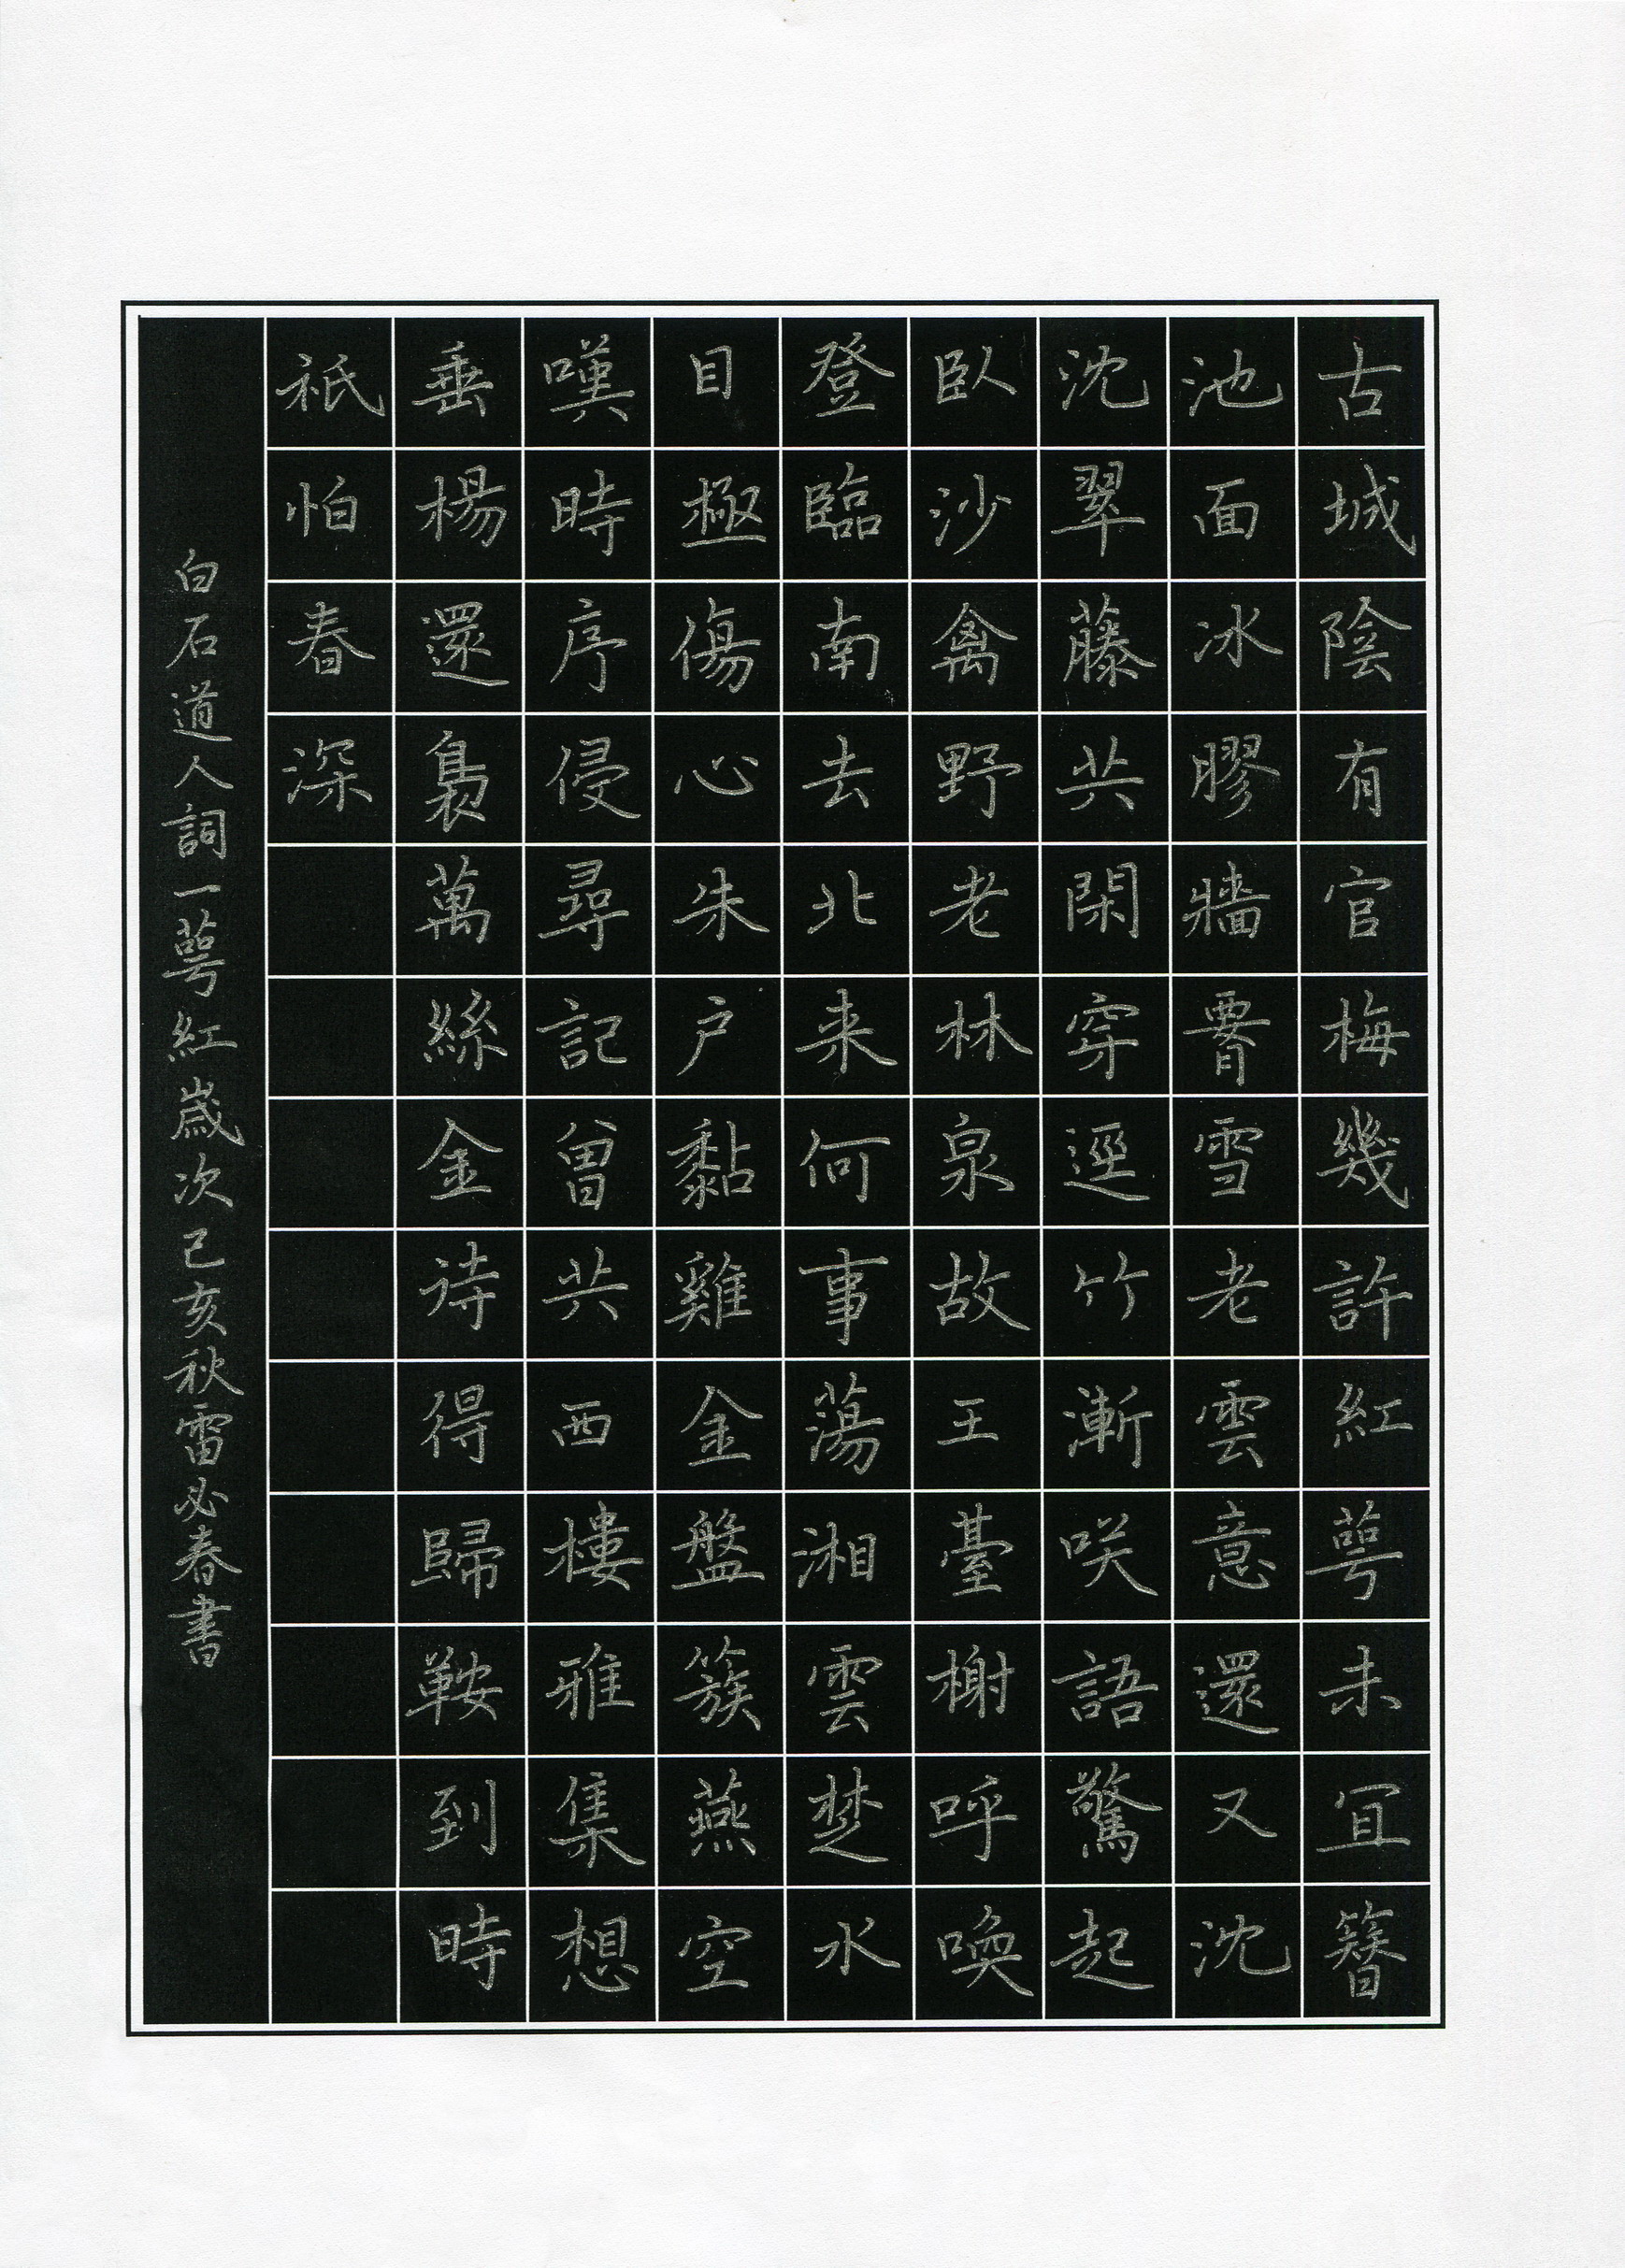 古城陰有官梅幾許紅萼未宜簪
池面冰膠牆腰雪老雲意還又沈
沈翠藤共閑穿逕竹漸咲語驚起
臥沙禽野老林泉故王臺榭呼喚
登臨南去北来何事蕩湘雲楚水
目極傷心朱户黏雞金盤簇燕空
嘆時序侵尋記曾共西樓雅集想
垂楊還裊萬絲金待得歸鞍到時
祇怕春深
白石道人詞一萼紅歲次己亥秋雷必春書